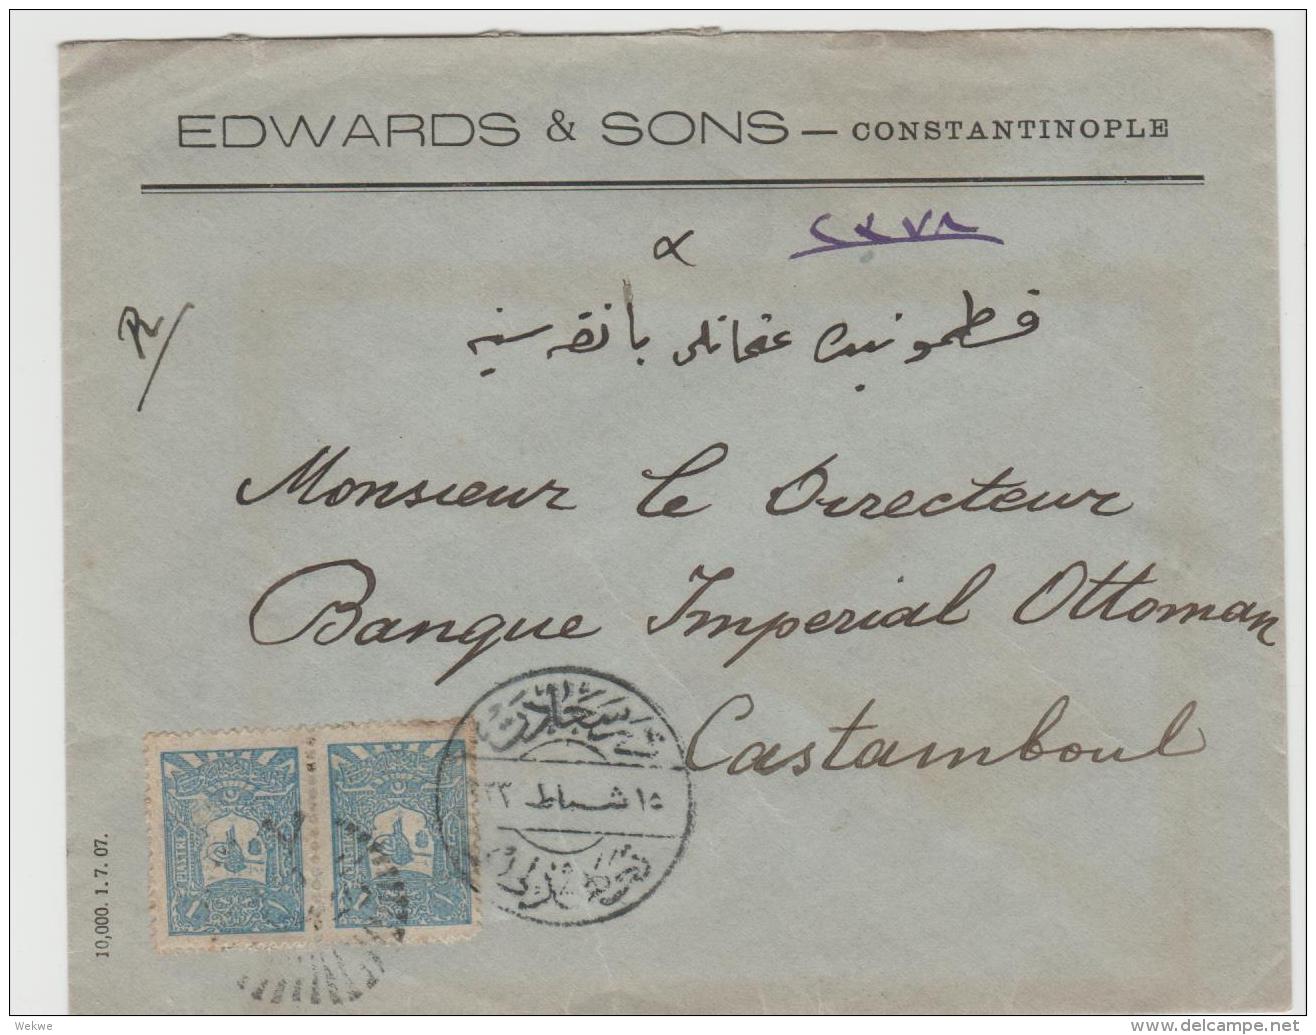 EDWARDS & SONS — CONSTANTINOPLE
٢٣٧٨
قسطمونیده عثمانلی بانقه سنه
Monsieur le Directeur
Banque Imperial Ottoman
Castamboul
در سعادت
١٥ شباط ٣٢٣
PIASTRE
10,000. 1. 7. 07.
Wekwe
www.delcampe.net